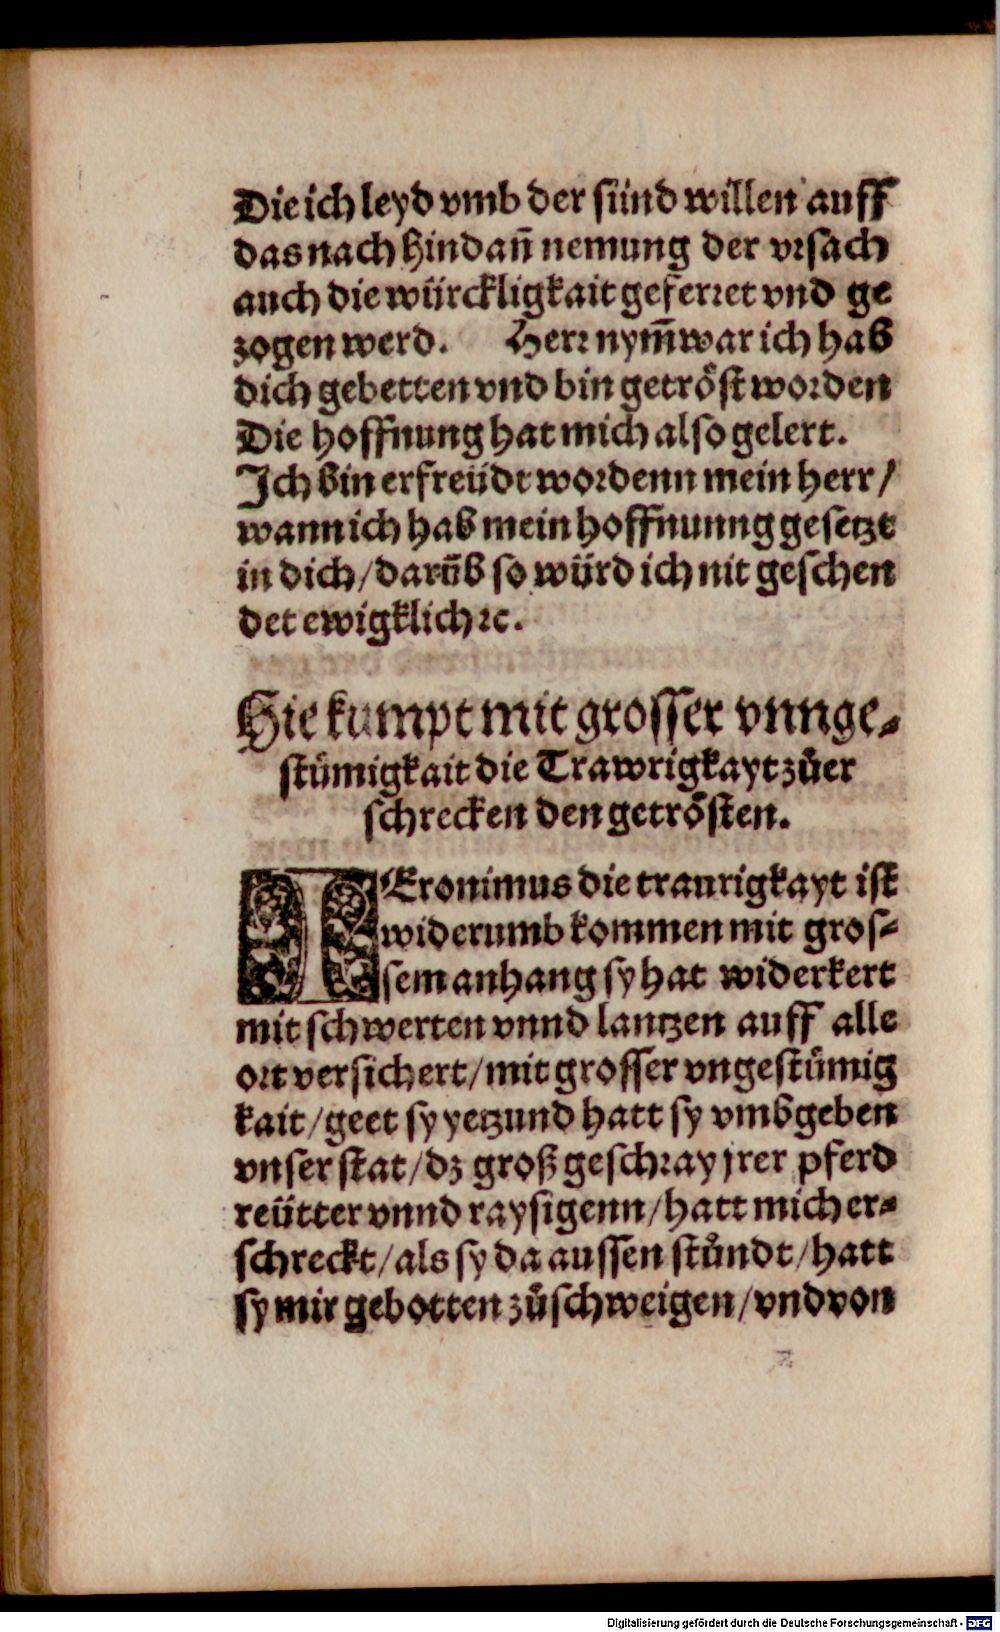 Die ich leyd vmb der sünd willen auff
das nach hindañ nemung der vrsach
auch die würckligkait geferret vnd ge
zogen werd. Herr nym̃ war ich hab
dich gebetten vnd bin getröst worden
Die hoffnung hat mich also gelert.
Ich bin erfreüdt wordenn mein herr/
wann ich hab mein hoffnunng gesetzt
in dich/darũb so würd ich nit geschen
det ewigklich ꝛc.
Hie kumpt mit grosser vnnge⸗
stümigkait die Trawrigkayt zůer
schrecken den getrösten.
HEronimus die traurigkayt ist
widerumb kommen mit gros⸗
sem anhang sy hat widerkert
mit schwerten vnnd lantzen auff alle
ort versichert/mit grosser vngestümig
kait/geet sy yetzund hatt sy vmbgeben
vnser stat/dz groß geschray jrer pferd
reütter vnnd raysigenn/hatt mich er⸗
schreckt/als sy da aussen stůndt/hatt
sy mir gebotten zůschweigen/vnd von
Digitalisierung gefördert durch die Deutsche Forschungsgemeinschaft - DFG